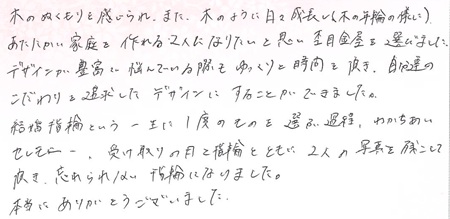 木のぬくもりを感じられ、また、木のように日々成長し(木の年輪の様に)
あたたかい家庭を作れる2人になりたいと思い杢目金屋を選びました。
デザインが豊富で悩んでいる際もゆっくりと時間を頂き、自分達の
こだわりを追求したデザインにすることができました。
結婚指輪という一生に1度のものを選ぶ過程、わかちあい
セレモニー、受け取りの日と指輪とともに2人の写真を残して
頂き、忘れられない指輪になりました。
本当にありがとうございました。